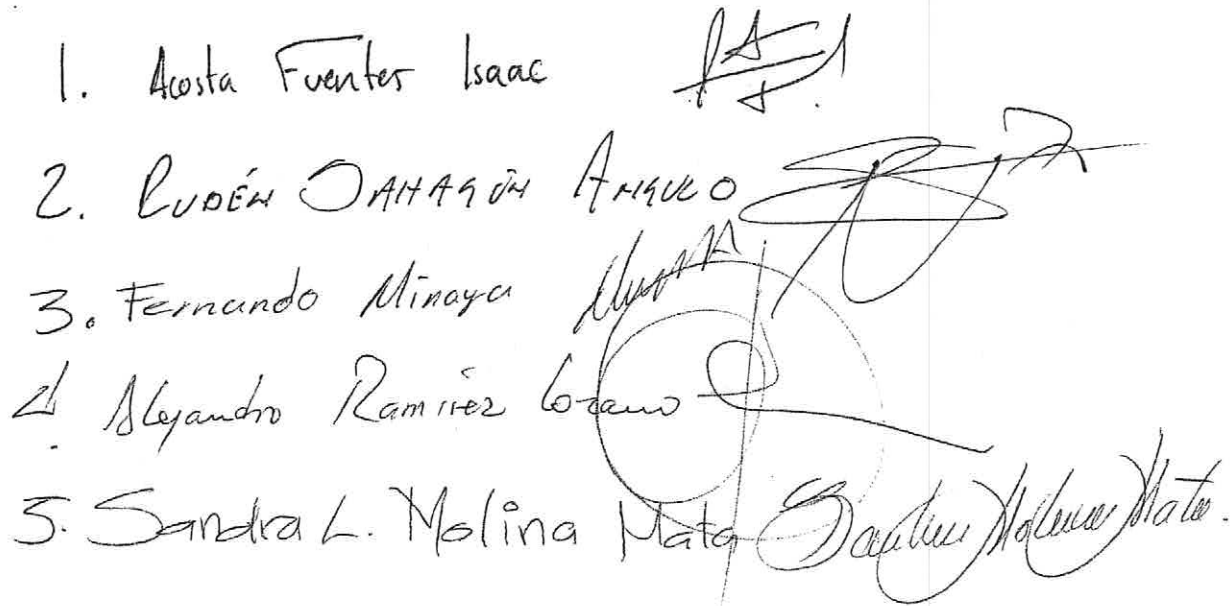 1. Acosta Fuentes Isaac
2. RUBÉN SAHAGÚN ANGULO
3. Fernando Minaya
4. Alejandro Ramírez Lozano
5. Sandra L. Molina Mata Sandra Molina Mata.